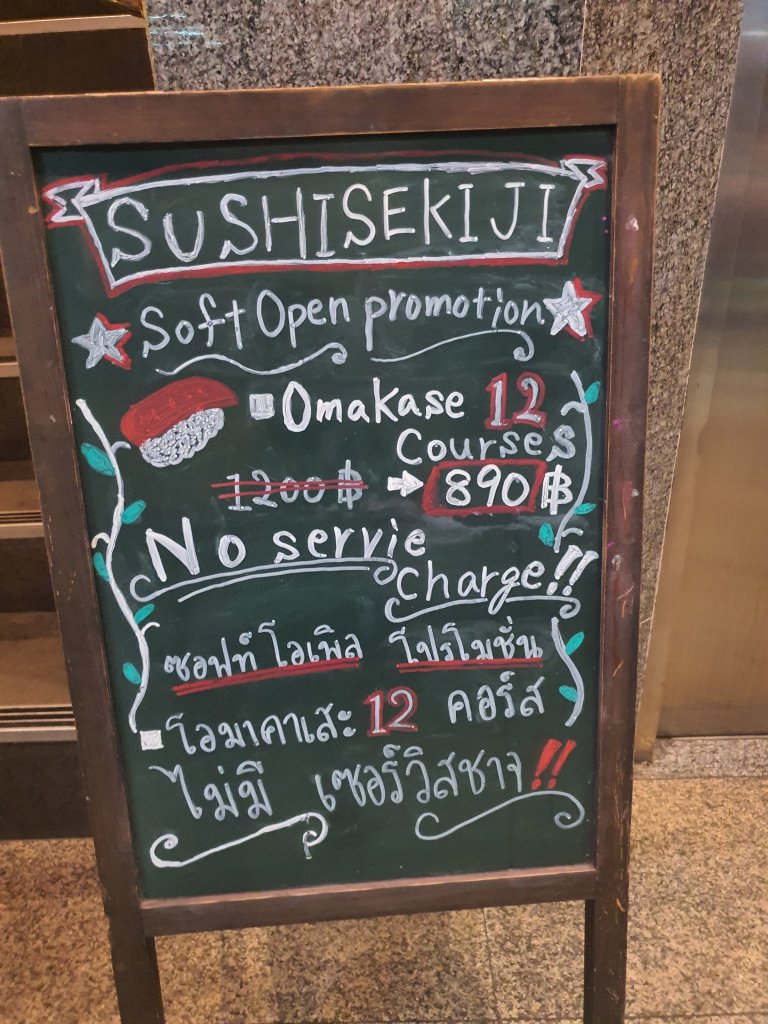 SUSHISEKIJI
Soft Open promotion
Omakase 12
Courses
1200 ฿ → 890 ฿
No servie
charge!!
ซอฟท์ โอเพิล โปรโมชั่น
โอมาคาเสะ 12 คอร์ส
ไม่มี เซอร์วิสชาจ!!